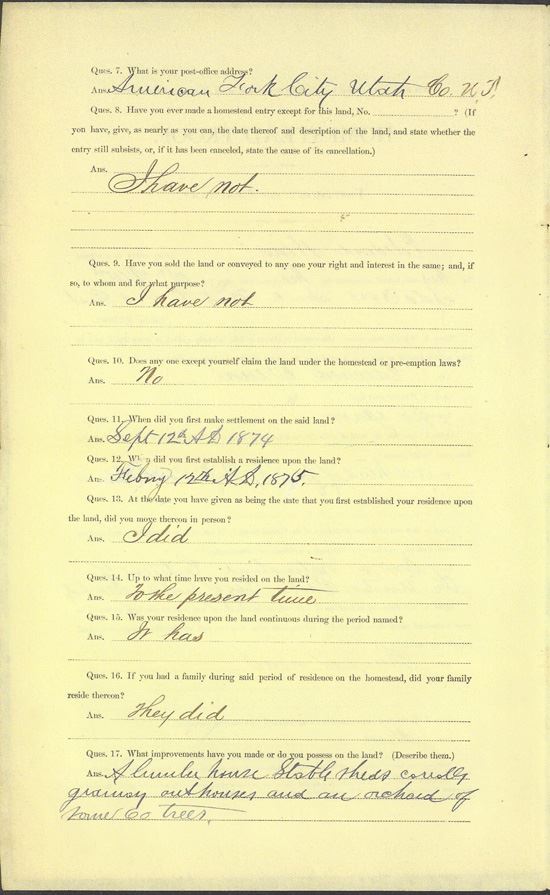 Ques. 7. What is your post-office address?
Ans. American Fork City Utah Co. U.T.
Ques. 8. Have you ever made a homestead entry except for this land, No. ? (If
you have, give, as nearly as you can, the date thereof and description of the land, and state whether the
entry still subsists, or, if it has been canceled, state the cause of its cancellation.)
Ans. I have not.
Ques. 9. Have you sold the land or conveyed to any one your right and interest in the same; and, if
so, to whom and for what purpose?
Ans. I have not
Ques. 10. Does any one except yourself claim the land under the homestead or pre-emption laws?
Ans. No
Ques. 11. When did you first make settlement on the said land?
Ans. Sept 12th A D 1874
Ques. 12. When did you first establish a residence upon the land?
Ans. Febry 12th A.D. 1875.
Ques. 13. At the date you have given as being the date that you first established your residence upon
the land, did you move thereon in person?
Ans. I did
Ques. 14. Up to what time have you resided on the land?
Ans. To the present time
Ques. 15. Was your residence upon the land continuous during the period named?
Ans. It has
Ques. 16. If you had a family during said period of residence on the homestead, did your family
reside thereon?
Ans. They did
Ques. 17. What improvements have you made or do you possess on the land? (Describe them.)
Ans. A lumber house Stable sheds corralls
granary outhouses and an orchard of
some 60 trees.